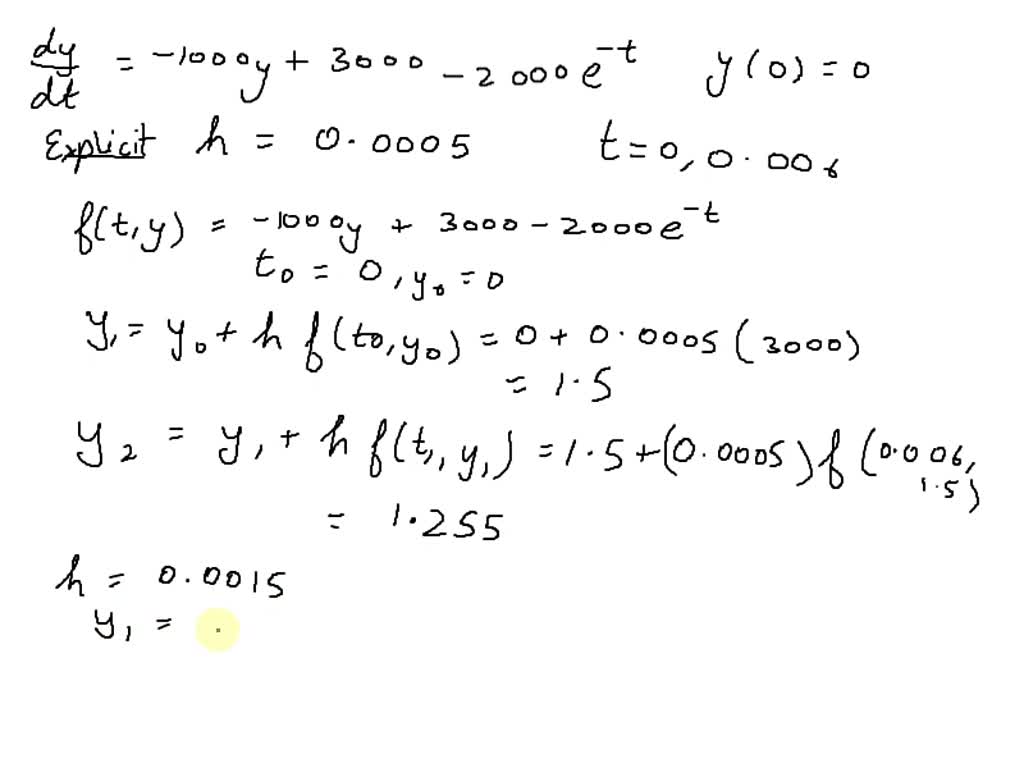 dy/dt = -1000y + 3000 - 2000e^-t y(0) = 0
Explicit h = 0.0005 t = 0, 0.006
f(t,y) = -1000y + 3000 - 2000e^-t
t0 = 0, y0 = 0
y1 = y0 + h f(t0, y0) = 0 + 0.0005(3000)
= 1.5
y2 = y1 + h f(t1, y1) = 1.5 + (0.0005) f(0.006, 1.5)
= 1.255
h = 0.0015
y1 = .